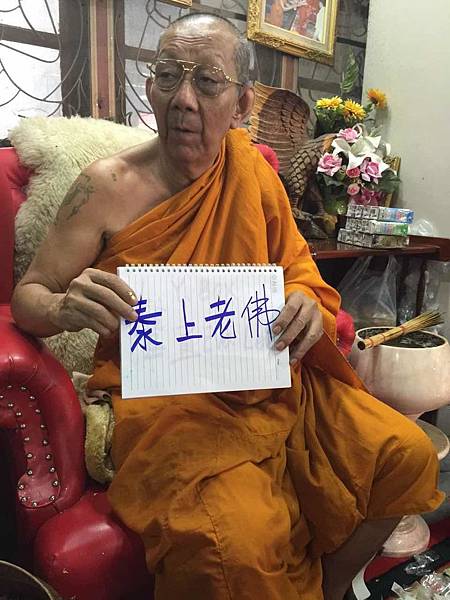 泰上老佛